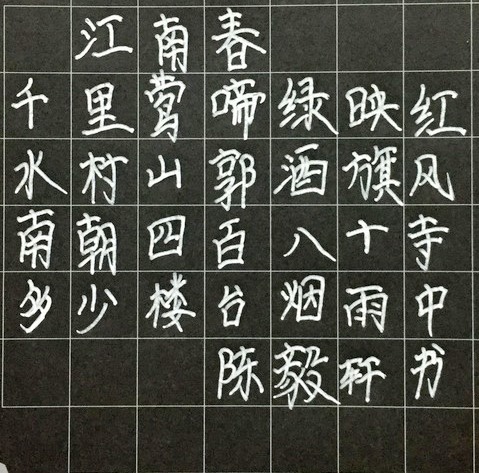 江南春
千里莺啼绿映红
水村山郭酒旗风
南朝四百八十寺
多少楼台烟雨中
陈毅轩书